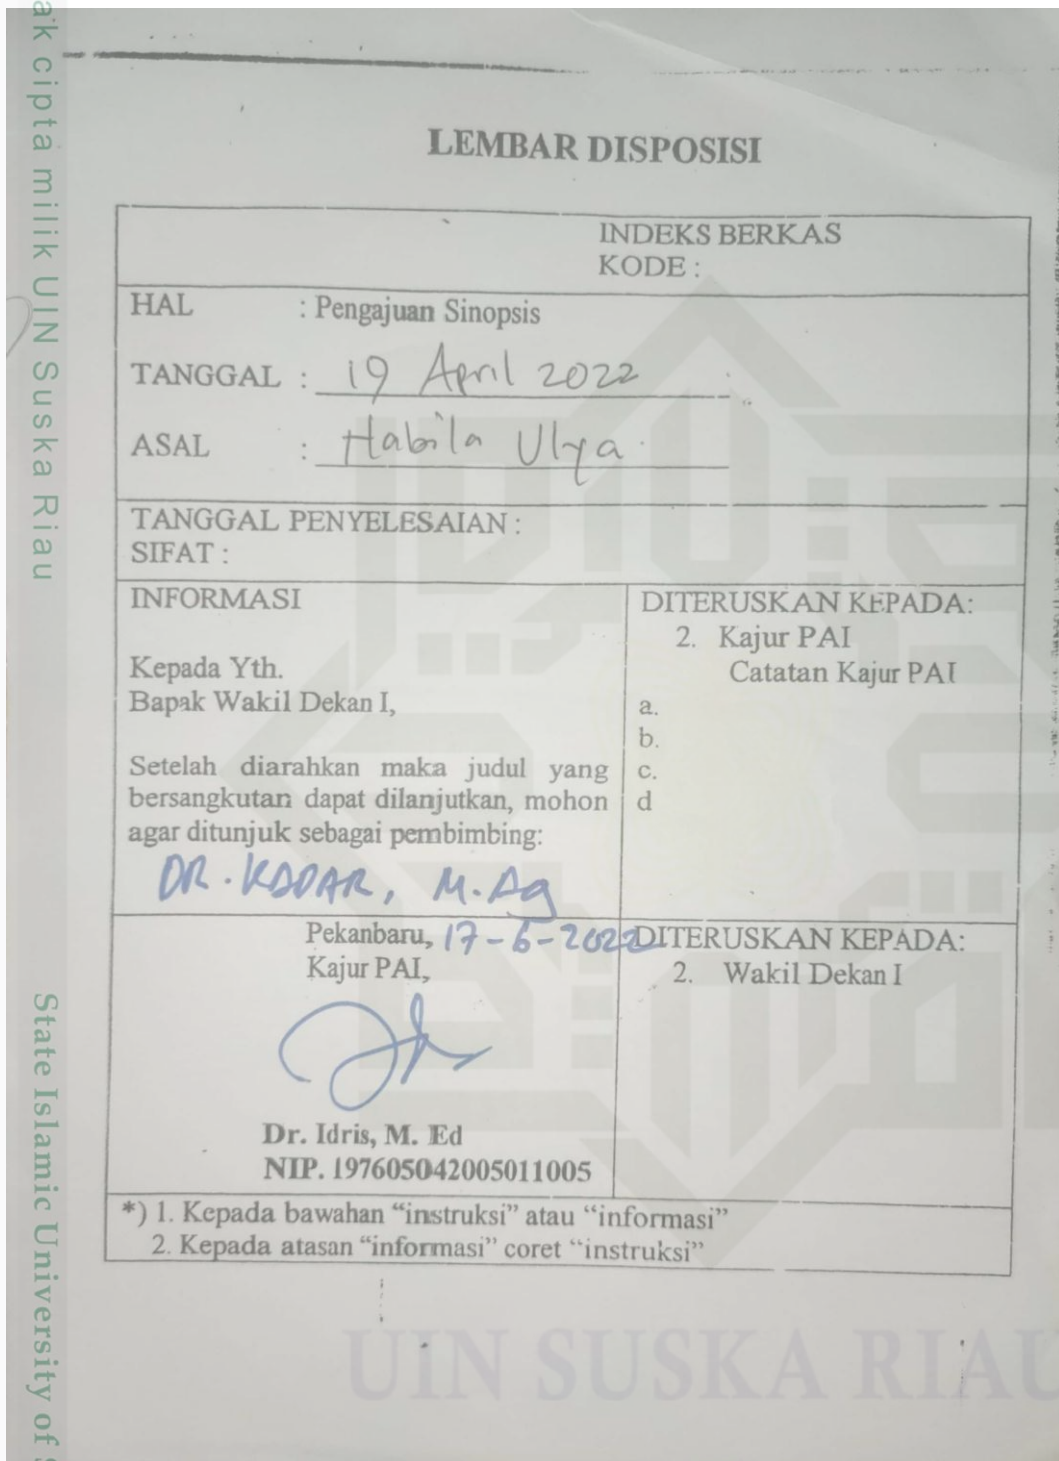 LEMBAR DISPOSISI
INDEKS BERKAS
KODE :
HAL : Pengajuan Sinopsis
TANGGAL : 19 April 2022
ASAL : Habila Ulya
TANGGAL PENYELESAIAN :
SIFAT :
INFORMASI
Kepada Yth.
Bapak Wakil Dekan I,
Setelah diarahkan maka judul yang
bersangkutan dapat dilanjutkan, mohon
agar ditunjuk sebagai pembimbing:
DR. KADAR, M.Ag
DITERUSKAN KEPADA:
2. Kajur PAI
Catatan Kajur PAI
a.
b.
c.
d
Pekanbaru, 17-6-2022
Kajur PAI,
Dr. Idris, M. Ed
NIP. 197605042005011005
DITERUSKAN KEPADA:
2. Wakil Dekan I
*) 1. Kepada bawahan “instruksi” atau “informasi”
2. Kepada atasan “informasi” coret “instruksi”
ak cipta milik UIN Suska Riau
State Islamic University of
UIN SUSKA RIAU